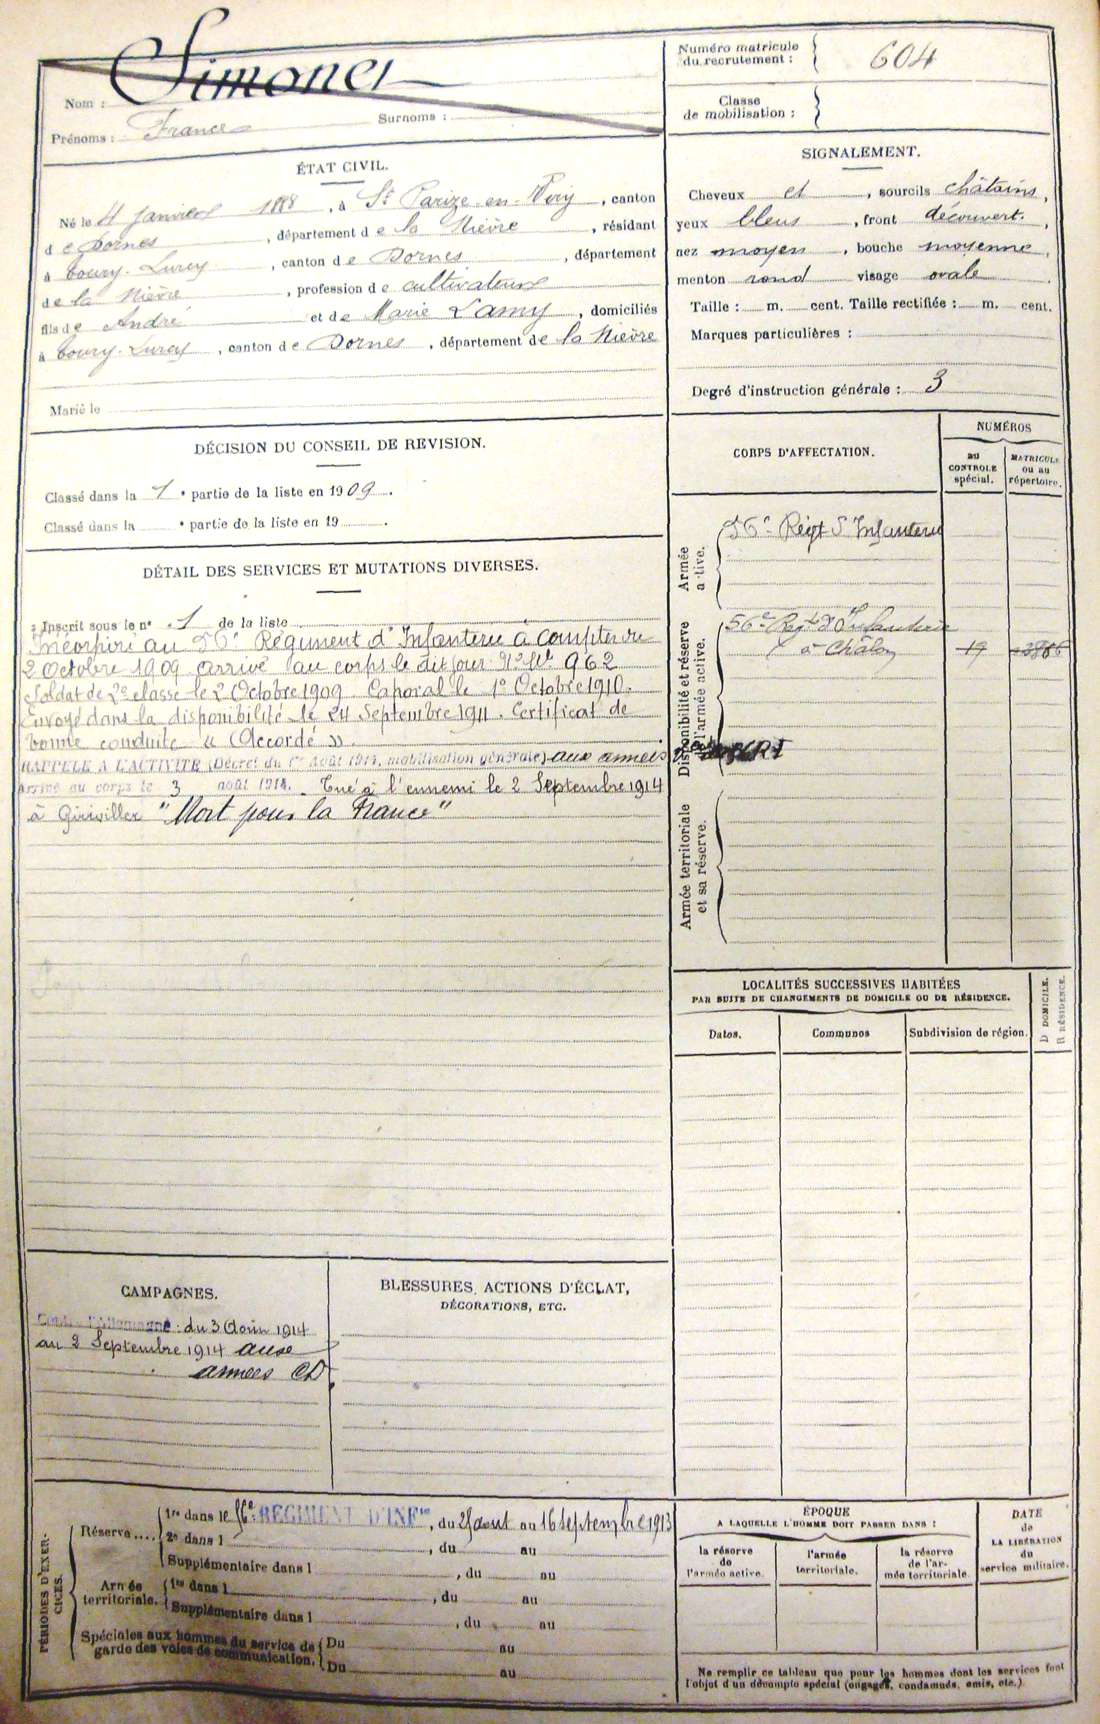 Nom : Simonet
Prénoms : France Surnoms :
Numéro matricule du recrutement : 604
Classe de mobilisation :
ÉTAT CIVIL.
Né le 4 janvier 1888, à St Parize-en-Viry, canton
de Dornes, département de la Nièvre, résidant
à Toury-Lurcy, canton de Dornes, département
de la Nièvre, profession de cultivateur
fils de André et de Marie Lamy, domiciliés
à Toury-Lurcy, canton de Dornes, département de la Nièvre
Marié le
SIGNALEMENT.
Cheveux et, sourcils châtains,
yeux bleus, front découvert.,
nez moyen, bouche moyenne,
menton rond visage ovale
Taille : m. cent. Taille rectifiée : m. cent.
Marques particulières :
Degré d'instruction générale : 3
DÉCISION DU CONSEIL DE REVISION.
Classé dans la 1e partie de la liste en 1909.
Classé dans la e partie de la liste en 19 .
DÉTAIL DES SERVICES ET MUTATIONS DIVERSES.
Inscrit sous le no 1 de la liste
Incorporé au 56e Régiment d'Infanterie à compter du
2 Octobre 1909 arrivé au corps le dit jour No Mle 962
Soldat de 2e classe le 2 Octobre 1909 Caporal le 1er Octobre 1910.
Envoyé dans la disponibilité le 24 Septembre 1911. Certificat de
bonne conduite « Accordé ».
RAPPELÉ A L'ACTIVITÉ (Décret du 1er Août 1914, mobilisation générale) aux armées
Arrivé au corps le 3 août 1914. Tué à l'ennemi le 2 Septembre 1914
à Giriviller "Mort pour la France"
CORPS D'AFFECTATION.
NUMÉROS
au CONTROLE spécial.
MATRICULE ou au répertoire.
Armée active.
56e Régt d'Infanterie
Disponibilité et réserve de l'armée active.
56e Regt d'Infanterie
à Chalon 19
Armée territoriale et sa réserve.
LOCALITÉS SUCCESSIVES HABITÉES
PAR SUITE DE CHANGEMENTS DE DOMICILE OU DE RÉSIDENCE.
Dates. Communes Subdivision de région. D DOMICILE. R RÉSIDENCE.
CAMPAGNES.
Contre l'Allemagne : du 3 Août 1914
au 2 Septembre 1914 aux
armées CD
BLESSURES, ACTIONS D'ÉCLAT,
DÉCORATIONS, ETC.
PÉRIODES D'EXERCICES.
Réserve....
1re dans le 56e RÉGIMENT D'INFie, du 25 aout au 16 septembre 1913
2e dans l , du au
Supplémentaire dans l , du au
Armée territoriale.
1re dans l , du au
Supplémentaire dans l , du au
Spéciales aux hommes du service de garde des voies de communication.
Du au
Du au
ÉPOQUE
A LAQUELLE L'HOMME DOIT PASSER DANS :
la réserve de l'armée active.
l'armée territoriale.
la réserve de l'armée territoriale.
DATE de LA LIBÉRATION du service militaire.
Ne remplir ce tableau que pour les hommes dont les services font
l'objet d'un décompte spécial (engagés, condamnés, omis, etc.).